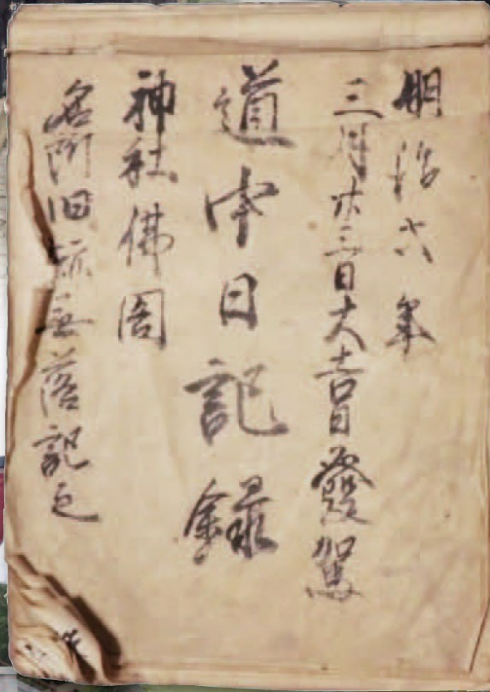 明治六年
三月廿三日大吉日發駕
道中日記録
神社佛閣
名所旧跡無落記之